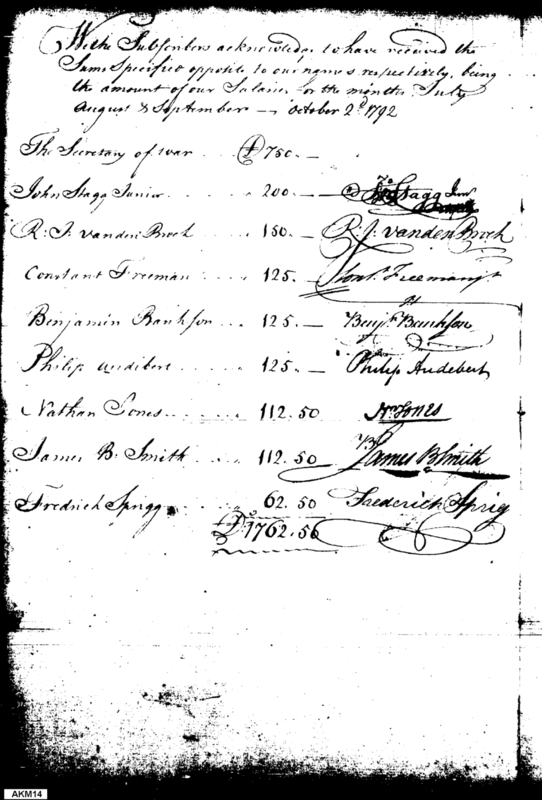 We the Subscribers acknowledge to have received the
Sums Specified opposite to our names respectively, being
the amount of our Salaries for the months July
August & September — October 2d 1792
The Secretary of war . . . D 750. —
John Stagg Junior . . . . . 200. — Jno Stagg Junr
R: J. vanden Broek . . . 150. — R: J. vanden Broek
Constant Freeman . . . . 125. — Const. Freeman
Benjamin Bankson . . . 125. — Benj. Bankson
Philip Audibert . . . . 125 — Philip Audebert
Nathan Jones . . . . . . 112.50 Nn Jones
James B. Smith . . . . . 112.50 James B Smith
Fredrick Sprigg . . . 62.50 Frederick Sprig
D. 1762.50
AKM14